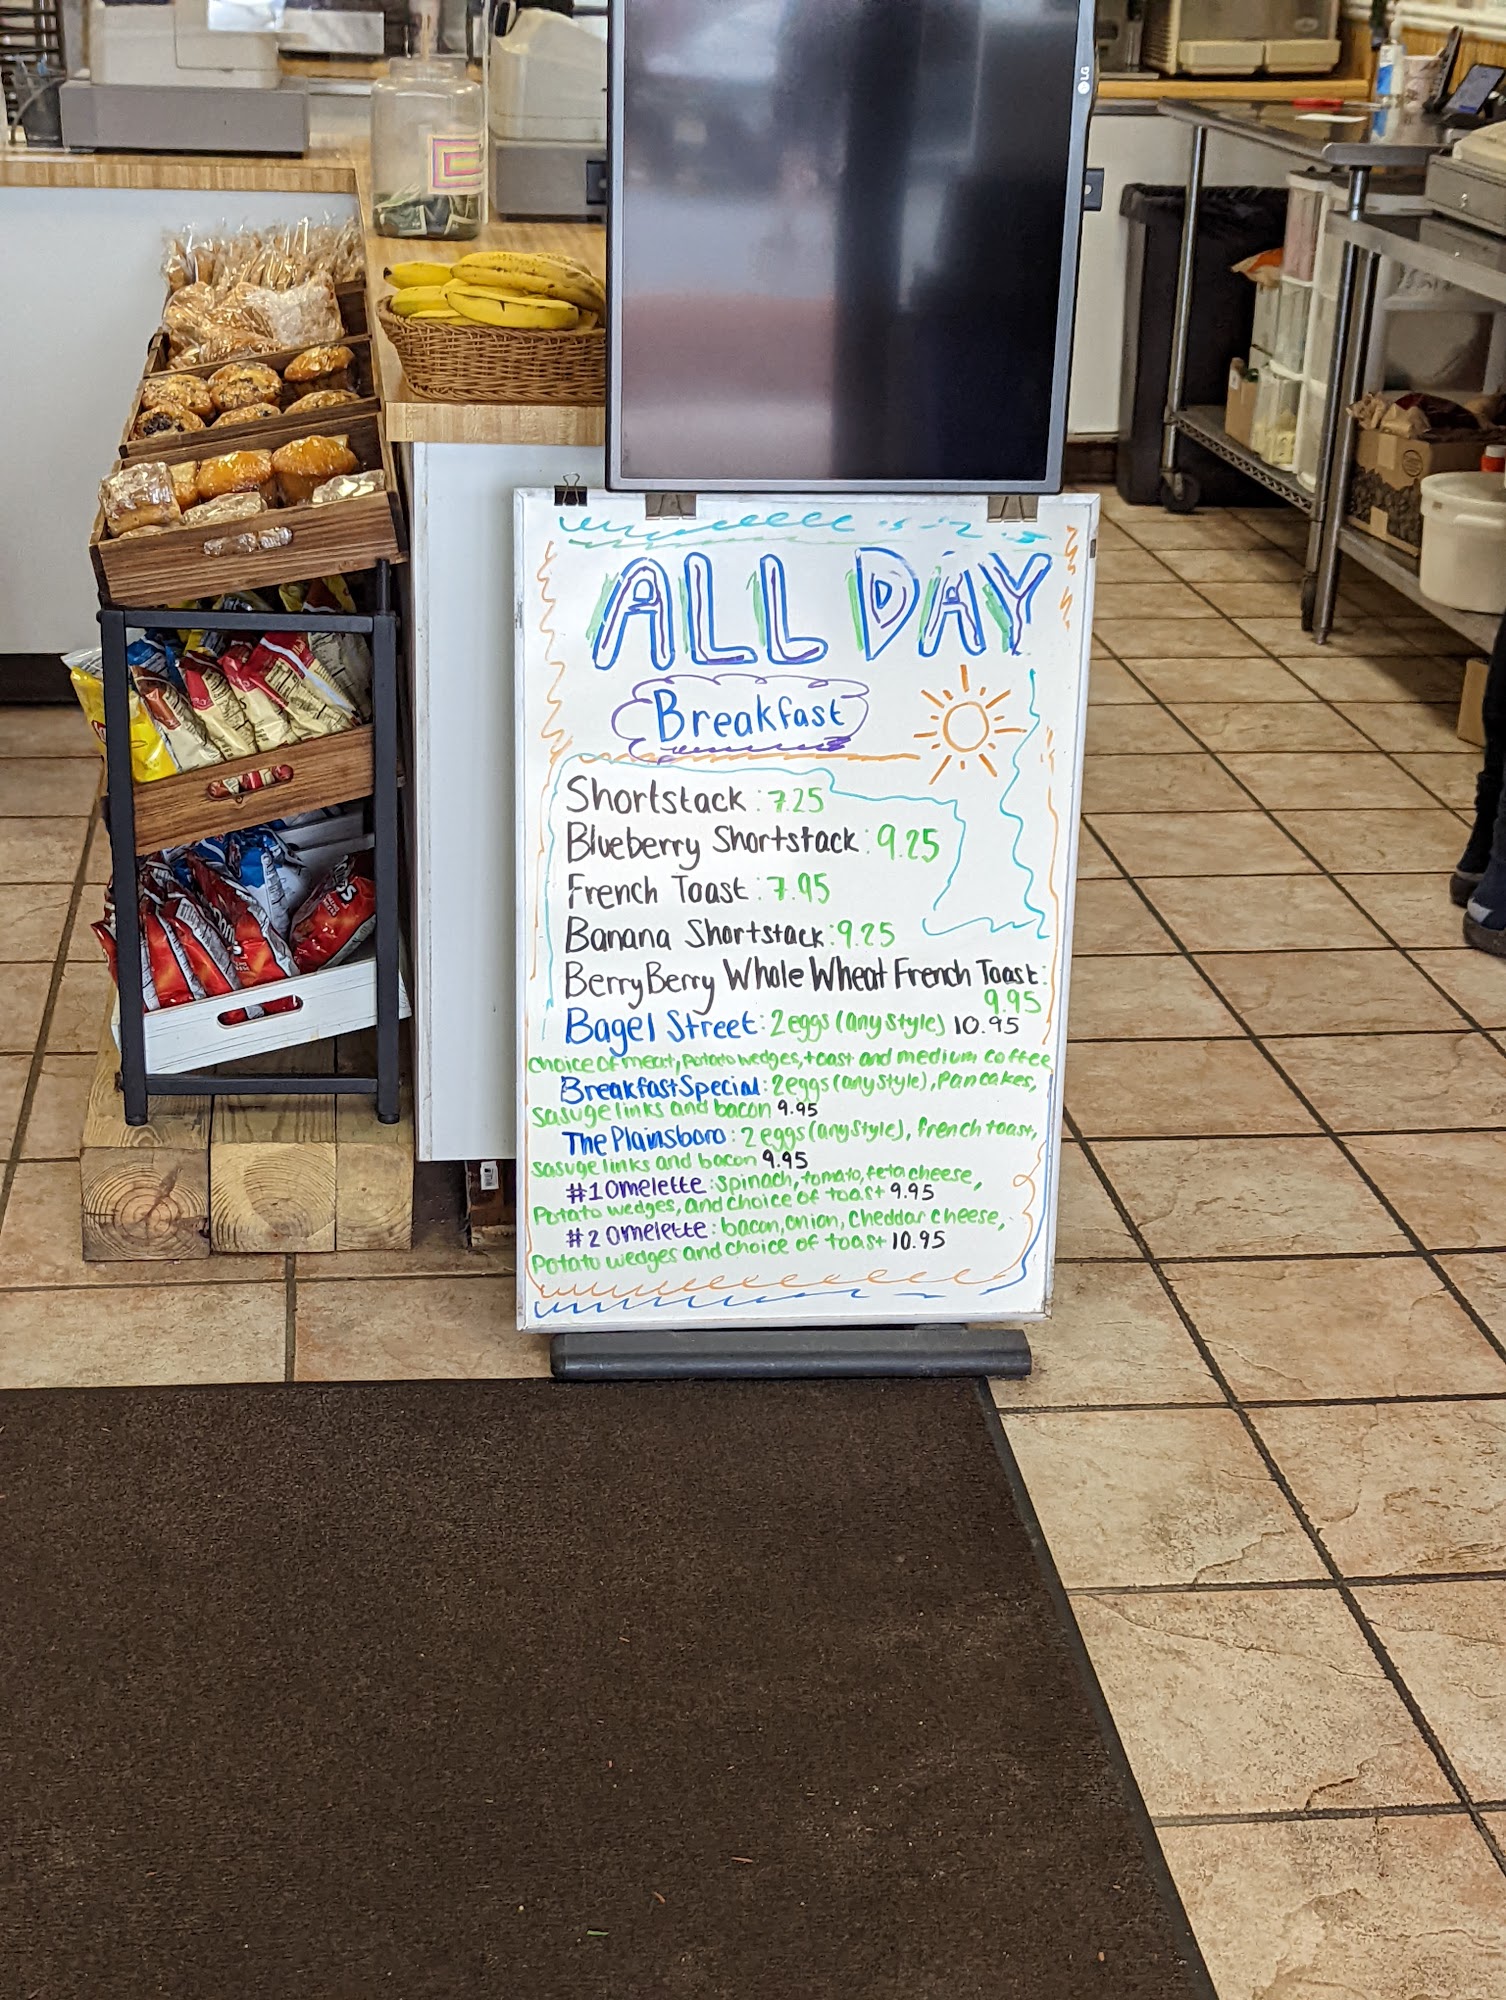 LG
ALL DAY
Breakfast
Shortstack: 7.25
Blueberry Shortstack: 9.25
French Toast: 7.95
Banana Shortstack: 9.25
Berry Berry Whole Wheat French Toast:
9.95
Bagel Street: 2 eggs (any style) 10.95
choice of meat, potato wedges, toast and medium coffee
Breakfast Special: 2 eggs (any style), Pancakes,
sasuge links and bacon 9.95
The Plainsboro: 2 eggs (any style), french toast,
sasuge links and bacon 9.95
#1 Omelette: spinach, tomato, feta cheese,
Potato wedges, and choice of toast 9.95
#2 Omelette: bacon, onion, cheddar cheese,
Potato wedges and choice of toast 10.95